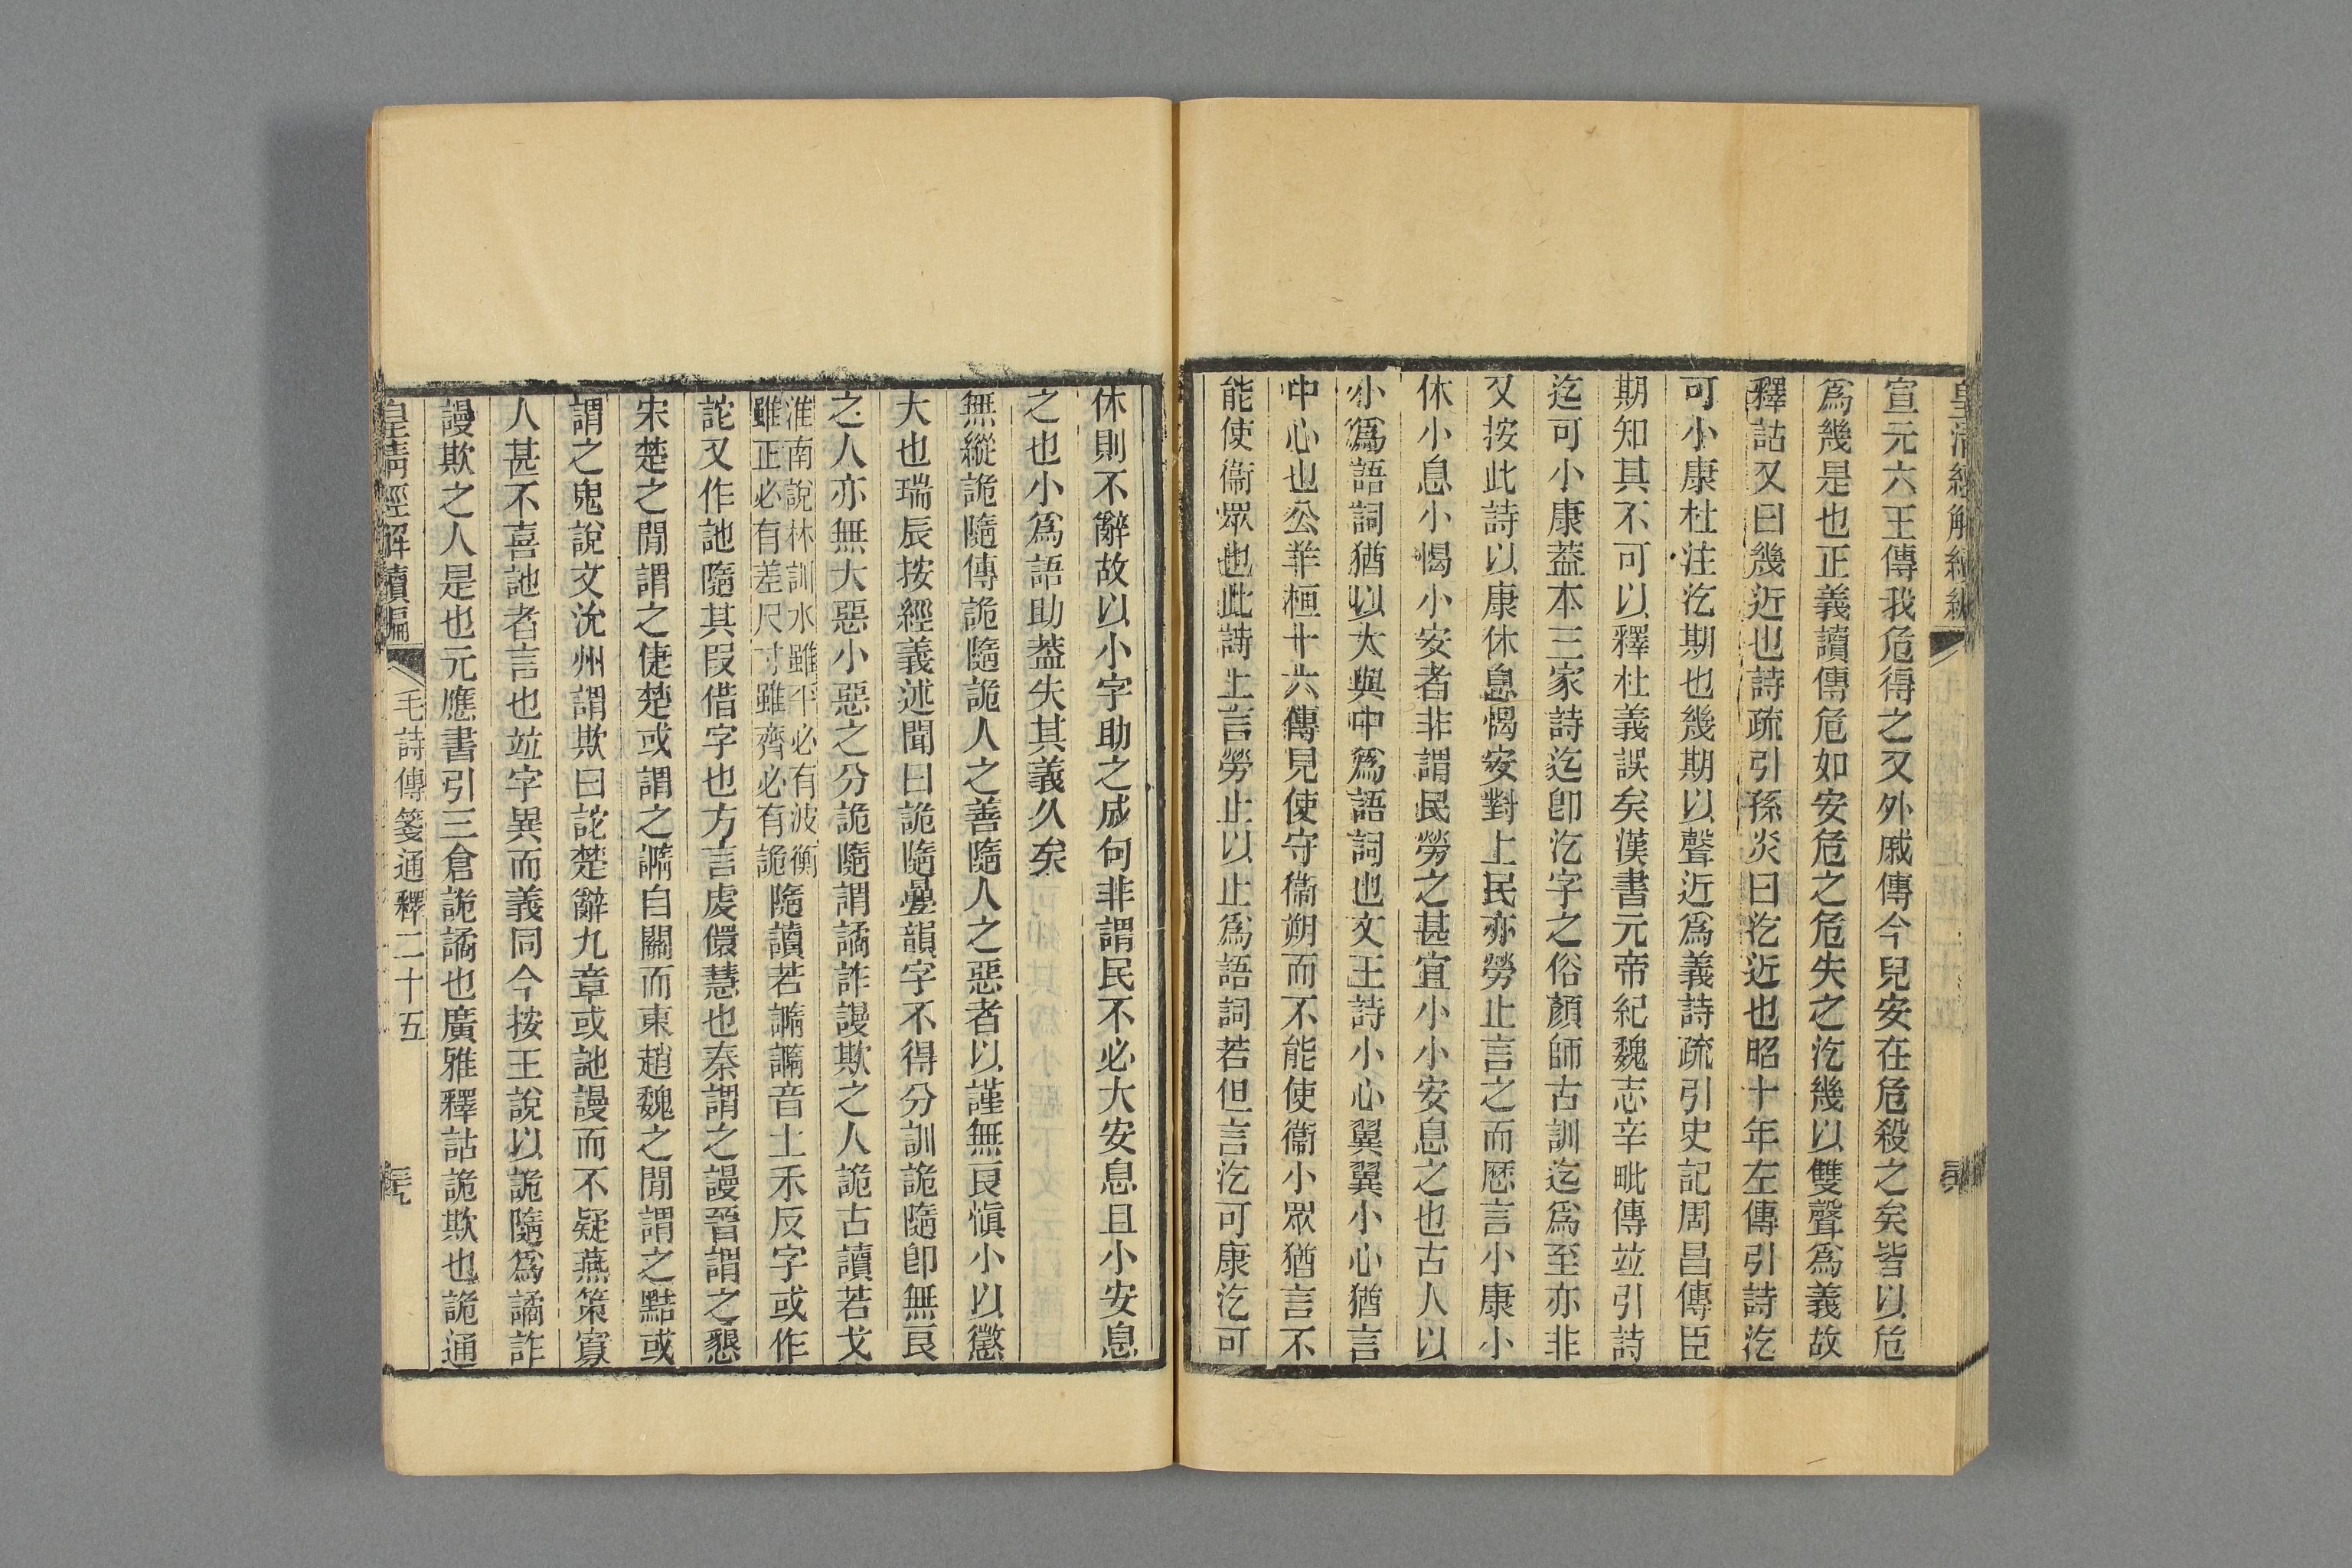 皇清經解續編
宣元六王傳我危得之又外戚傳今兒安在危殺之矣皆以危
爲幾是也正義讀傳危如安危之危失之汔幾以雙聲爲義故
釋詁又曰幾近也詩疏引孫炎曰汔近也昭十年左傳引詩汔
可小康杜注汔期也幾期以聲近爲義詩疏引史記周昌傳臣
期知其不可以釋杜義誤矣漢書元帝紀魏志辛毗傳竝引詩
迄可小康葢本三家詩迄卽汔字之俗顏師古訓迄爲至亦非
又按此詩以康休息愒安對上民亦勞止言之而厯言小康小
休小息小愒小安者非謂民勞之甚宜小小安息之也古人以
小爲語詞猶以大與中爲語詞也文王詩小心翼翼小心猶言
中心也公羊桓十六傳見使守衞朔而不能使衞小眾猶言不
能使衞眾也此詩上言勞止以止爲語詞若但言汔可康汔可
休則不辭故以小字助之成句非謂民不必大安息且小安息
之也小爲語助葢失其義久矣
無縱詭隨傳詭隨詭人之善隨人之惡者以謹無良愼小以懲
大也瑞辰按經義述聞曰詭隨曡韻字不得分訓詭隨卽無良
之人亦無大惡小惡之分詭隨謂譎詐謾欺之人詭古讀若戈
淮南說林訓水雖平必有波衡
雖正必有差尺寸雖齊必有詭
隨讀若譌譌音土禾反字或作
詑又作訑隨其叚借字也方言虔儇慧也秦謂之謾晉謂之㦟
宋楚之閒謂之倢楚或謂之譌自關而東趙魏之閒謂之黠或
謂之鬼說文沇州謂欺曰詑楚辭九章或訑謾而不疑燕策寡
人甚不喜訑者言也竝字異而義同今按王說以詭隨爲譎詐
謾欺之人是也元應書引三倉詭譎也廣雅釋詁詭欺也詭通
皇清經解續編
毛詩傳箋通釋二十五